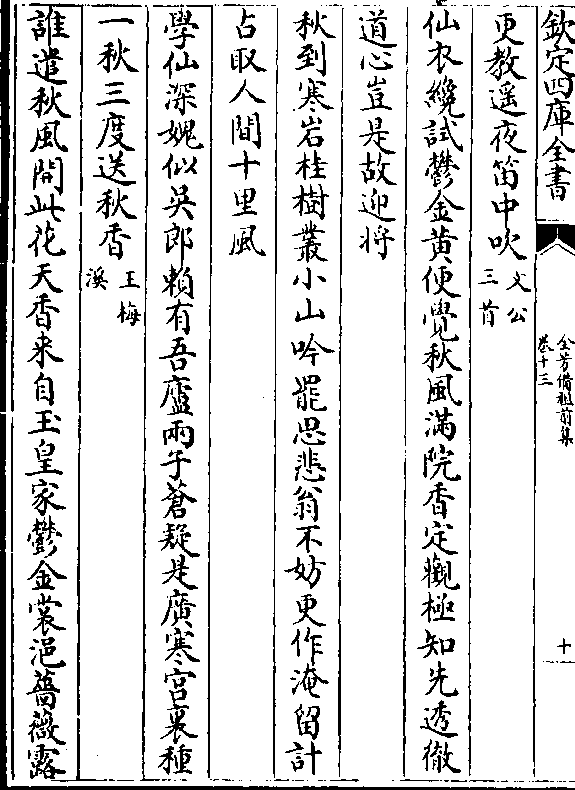 欽定四庫全書
全芳備祖前集
卷十三
十
更教遥夜笛中吹
文公
三首
仙衣纔試鬱金黄便覺秋風滿院香定觀極知先透徹
道心豈是故迎將
秋到寒岩桂樹叢小山吟罷思悲翁不妨更作淹留計
占取人間十里風
學仙深媿似吳郎賴有吾廬兩子蒼疑是廣寒宫裏種
一秋三度送秋香
王梅
溪
誰遣秋風開此花天香来自玉皇家鬱金裳浥薔薇露